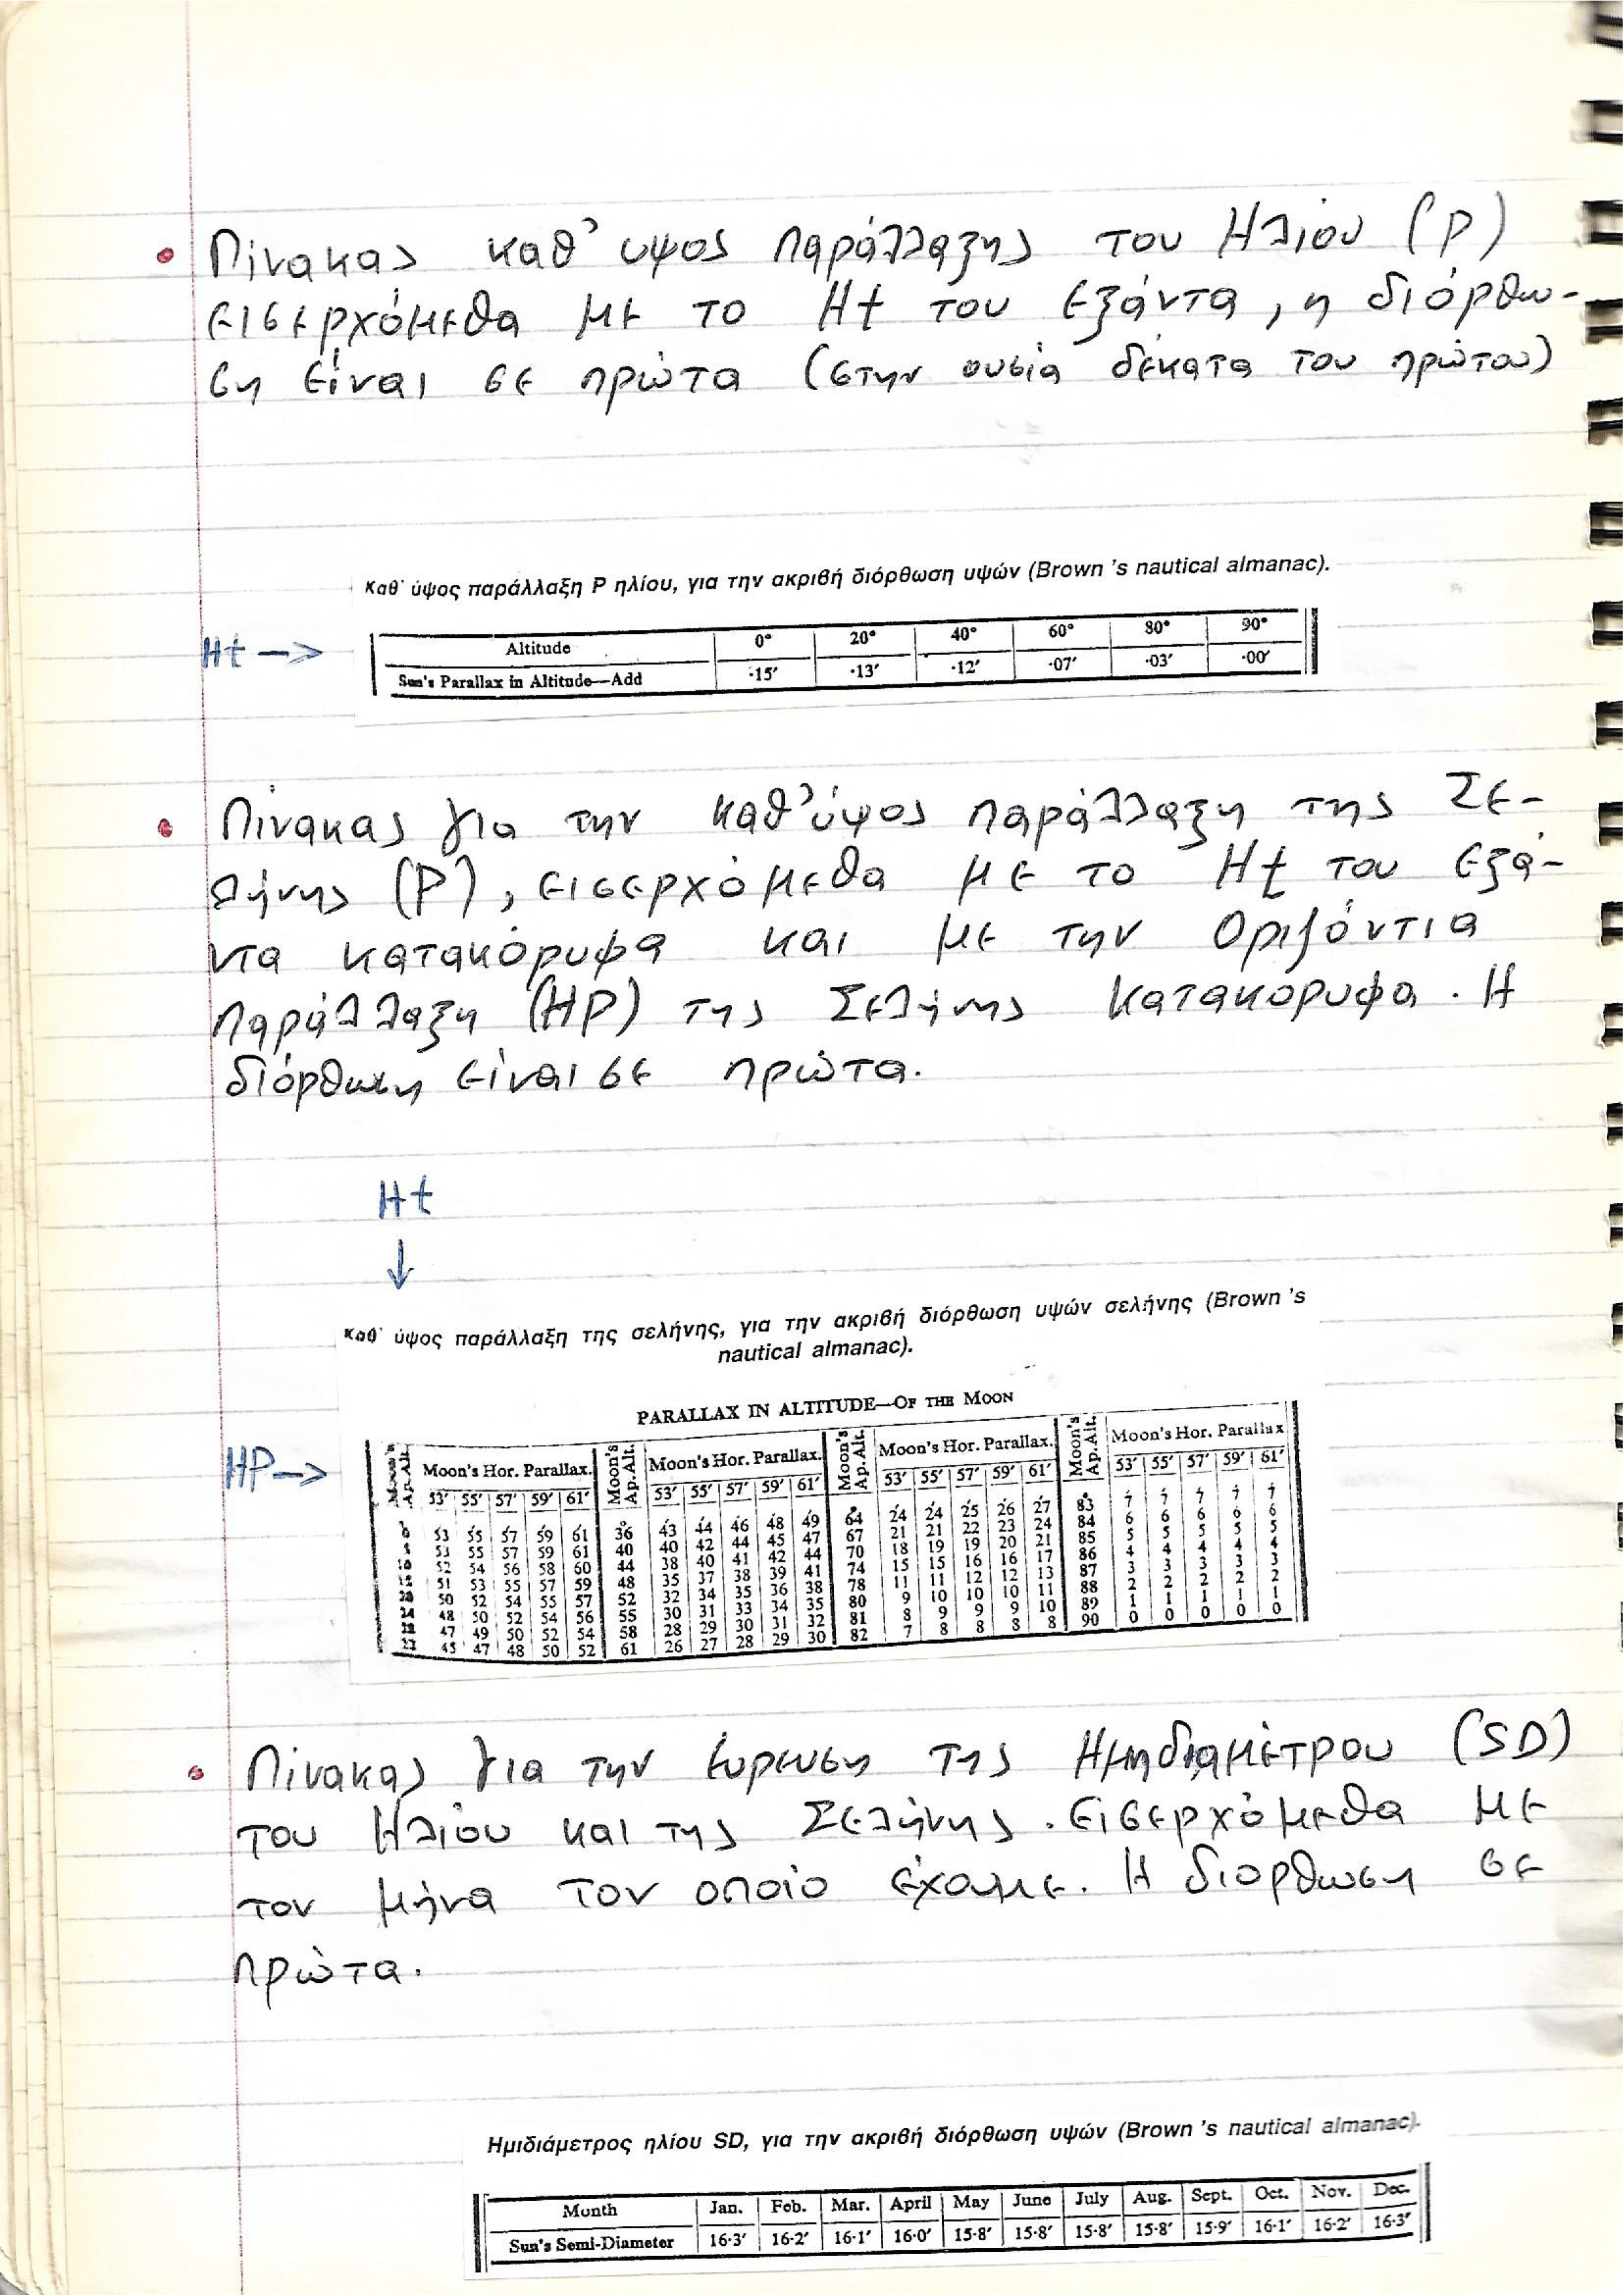 • Πίνακας καθ' υψος παράλλαξης του Ηλίου (P)
εισερχόμεθα με το Ht του εξάντα, η διόρθω-
ση είναι σε πρώτα (στην ουσία δέκατα του πρώτου)
Καθ' ύψος παράλλαξη P ηλίου, για την ακριβή διόρθωση υψών (Brown 's nautical almanac).
Ht → Altitude 0° 20° 40° 60° 80° 90°
Sun's Parallax in Altitude—Add ·15′ ·13′ ·12′ ·07′ ·03′ ·00′
• Πίνακας για την καθ' ύψος παράλλαξη της Σε-
λήνης (P), εισερχόμεθα με το Ht του εξά-
ντα κατακόρυφα και με την Οριζόντια
παράλλαξη (HP) της Σελήνης κατακορυφα. Η
διόρθωση είναι σε πρώτα.
Ht
↓
Καθ' ύψος παράλλαξη της σελήνης, για την ακριβή διόρθωση υψών σελήνης (Brown 's
nautical almanac).
PARALLAX IN ALTITUDE—OF THE MOON
HP → Moon's Ap. Alt. Moon's Hor. Parallax. Moon's Ap. Alt. Moon's Hor. Parallax. Moon's Ap. Alt. Moon's Hor. Parallax. Moon's Ap. Alt. Moon's Hor. Parallax
53′ 55′ 57′ 59′ 61′ 53′ 55′ 57′ 59′ 61′ 53′ 55′ 57′ 59′ 61′ 53′ 55′ 57′ 59′ 61′
53 55 57 59 61 36 43 44 46 48 49 64 24 24 25 26 27 83 7 7 7 7 7
53 55 57 59 61 40 40 42 44 45 47 67 21 21 22 23 24 84 6 6 6 6 6
52 54 56 58 60 44 38 40 41 42 44 70 18 19 19 20 21 85 5 5 5 5 5
51 53 55 57 59 48 35 37 38 39 41 74 15 15 16 16 17 86 4 4 4 4 4
50 52 54 55 57 52 32 34 35 36 38 78 11 11 12 12 13 87 3 3 3 3 3
48 50 52 54 56 55 30 31 33 34 35 80 9 10 10 10 11 88 2 2 2 2 2
47 49 50 52 54 58 28 29 30 31 32 81 8 9 9 9 10 89 1 1 1 1 1
45 47 48 50 52 61 26 27 28 29 30 82 7 8 8 8 8 90 0 0 0 0 0
• Πίνακας για την ευρευση της Ημηδιαμέτρου (SD)
του Ηλίου και της Σελήνης. Εισερχόμεθα με
τον μήνα τον οποίο έχουμε. Η διορθωση σε
πρώτα.
Ημιδιάμετρος ηλίου SD, για την ακριβή διόρθωση υψών (Brown 's nautical almanac).
Month Jan. Feb. Mar. April May June July Aug. Sept. Oct. Nov. Dec.
Sun's Semi-Diameter 16·3′ 16·2′ 16·1′ 16·0′ 15·8′ 15·8′ 15·8′ 15·8′ 15·9′ 16·1′ 16·2′ 16·3′